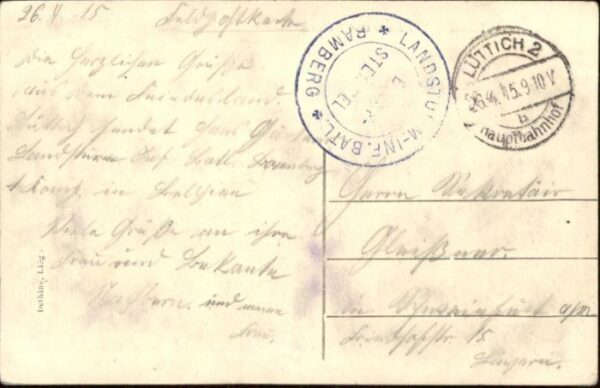 26. 4. 15 Feldpostkarte
die herzlichen Grüße
aus dem Feindesland.
Lüttich sendet Hans
Landsturm Inf. Batl. Bamberg
1 Komp. in Belgien
Viele Grüße an ihre
Frau und Bekante
Nachbarn. und meine
Frau.
LANDSTURM-INF.BATL. * BAMBERG *
STEMPEL
LÜTTICH 2
26.4.15.9-10V
b
Hauptbahnhof
Herrn Sekretair
Gleißner.
in Schweinfurt a/m
15.
Bayern.